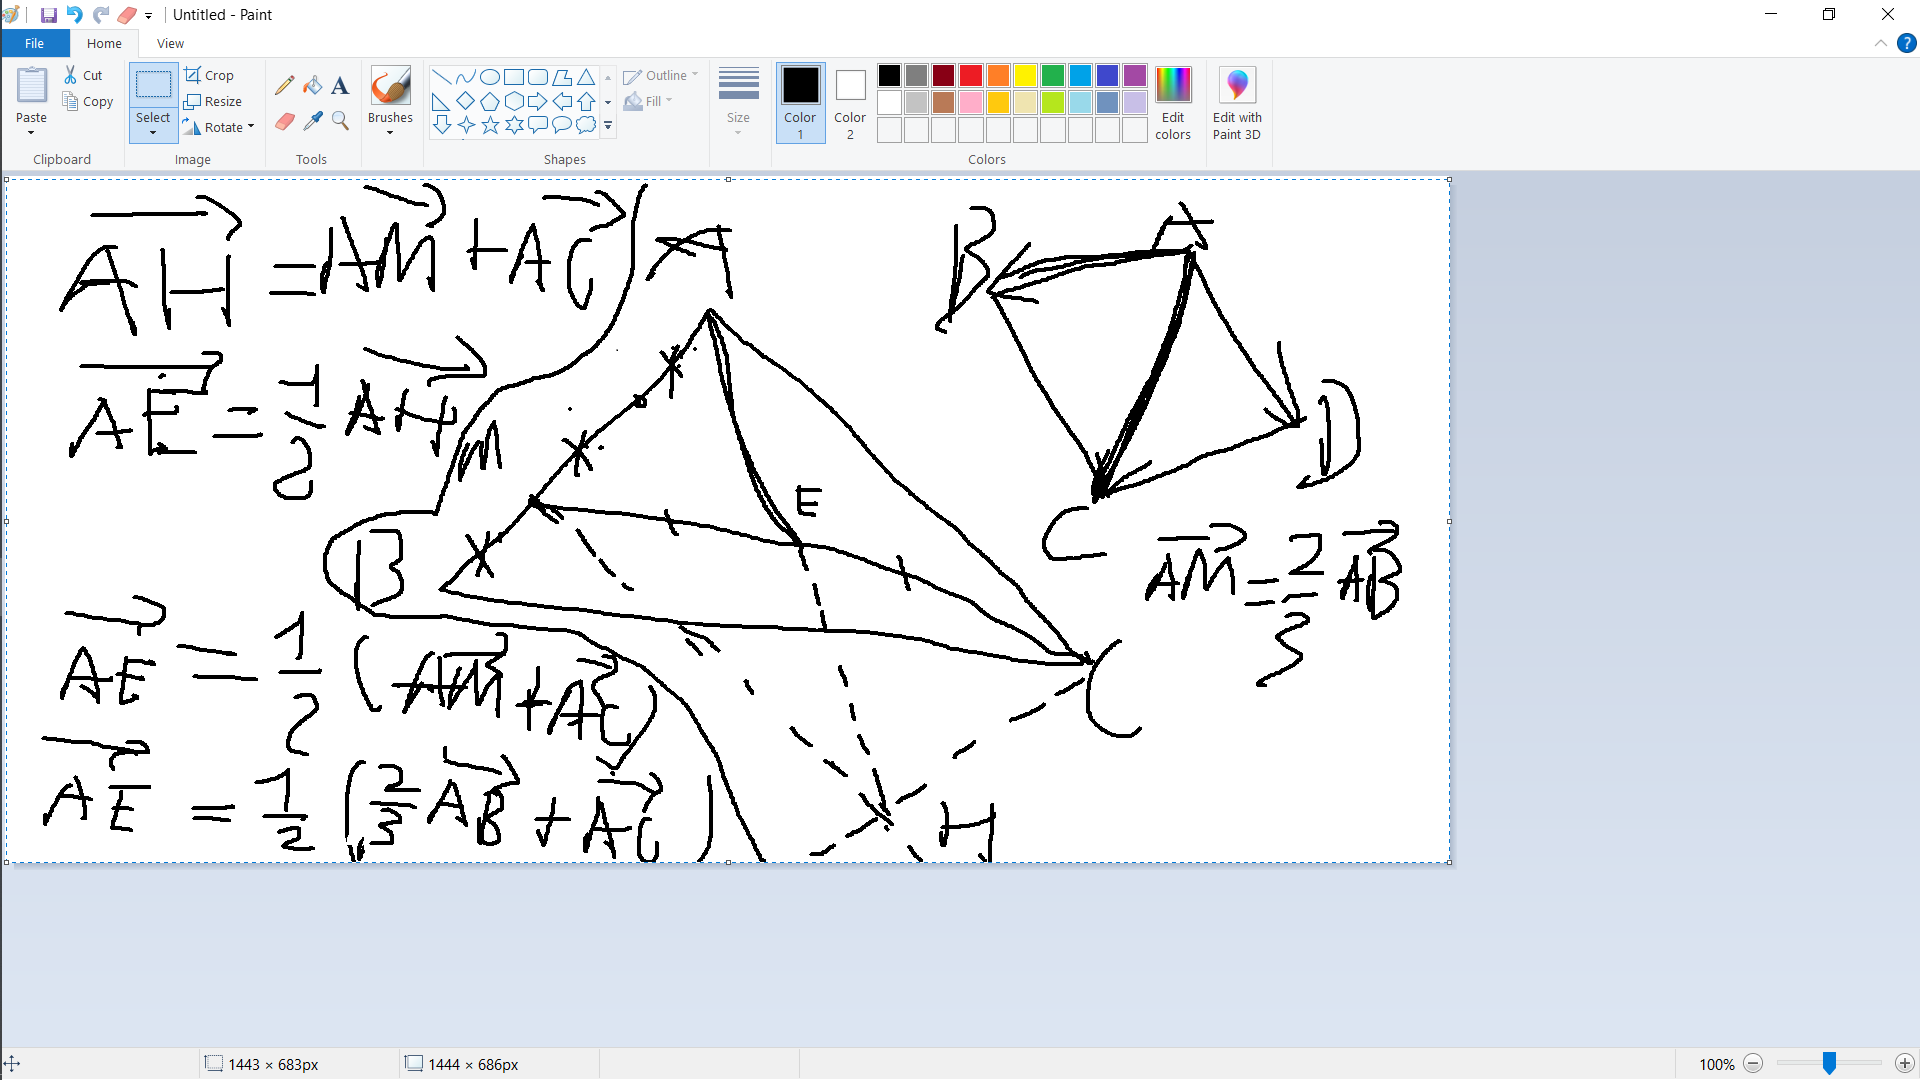 Untitled - Paint
File Home View
Paste Cut Copy Clipboard
Select Crop Resize Rotate Image
Tools
Brushes
Shapes Outline Fill
Size
Color 1 Color 2 Edit colors Colors
Edit with Paint 3D
AH = AM + AC
AE = 1/2 AH
AE = 1/2 (AM + AC)
AE = 1/2 (2/3 AB + AC)
A
M
E
B
C
H
B A
D
C
AM = 2/3 AB
1443 × 683px 1444 × 686px 100%